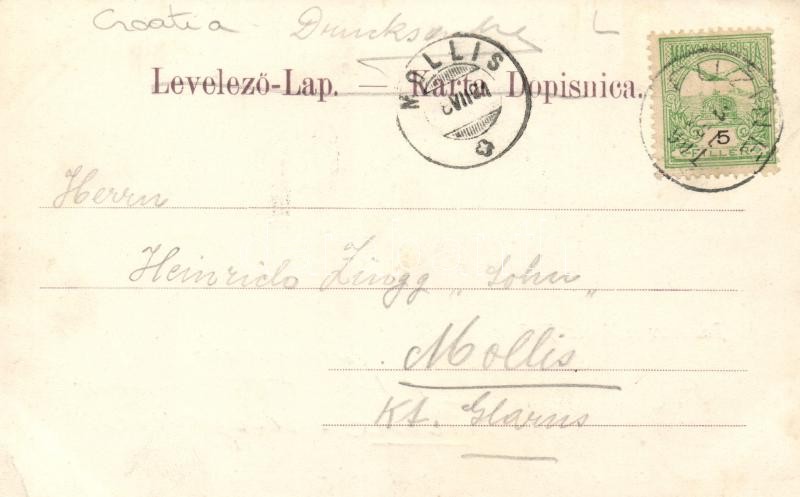 Croatia Drucksache
Levelező-Lap. — Karta Dopisnica.
MOLLIS
VII
MAGYAR KIR. POSTA
5
FILLÉR
Herrn
Heinrich Zingg „Sohn“
Mollis
Kt. Glarus